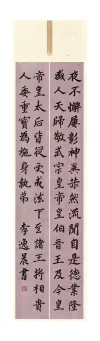 夜不懈屢彰神異赫然流聞自是德業隆
盛人天歸敬武宗皇帝皇伯晉王及今皇
帝皇太后皆從受戒法下至諸王將相貴
人委重寶為施身執弟 李逸晨書